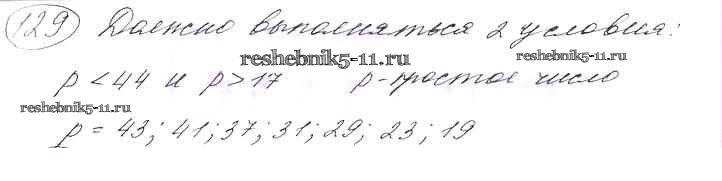 129 Должно выполняться 2 условия:
reshebnik5-11.ru reshebnik5-11.ru
p < 44 и p > 17 p - простое число
reshebnik5-11.ru
p = 43; 41; 37; 31; 29; 23; 19